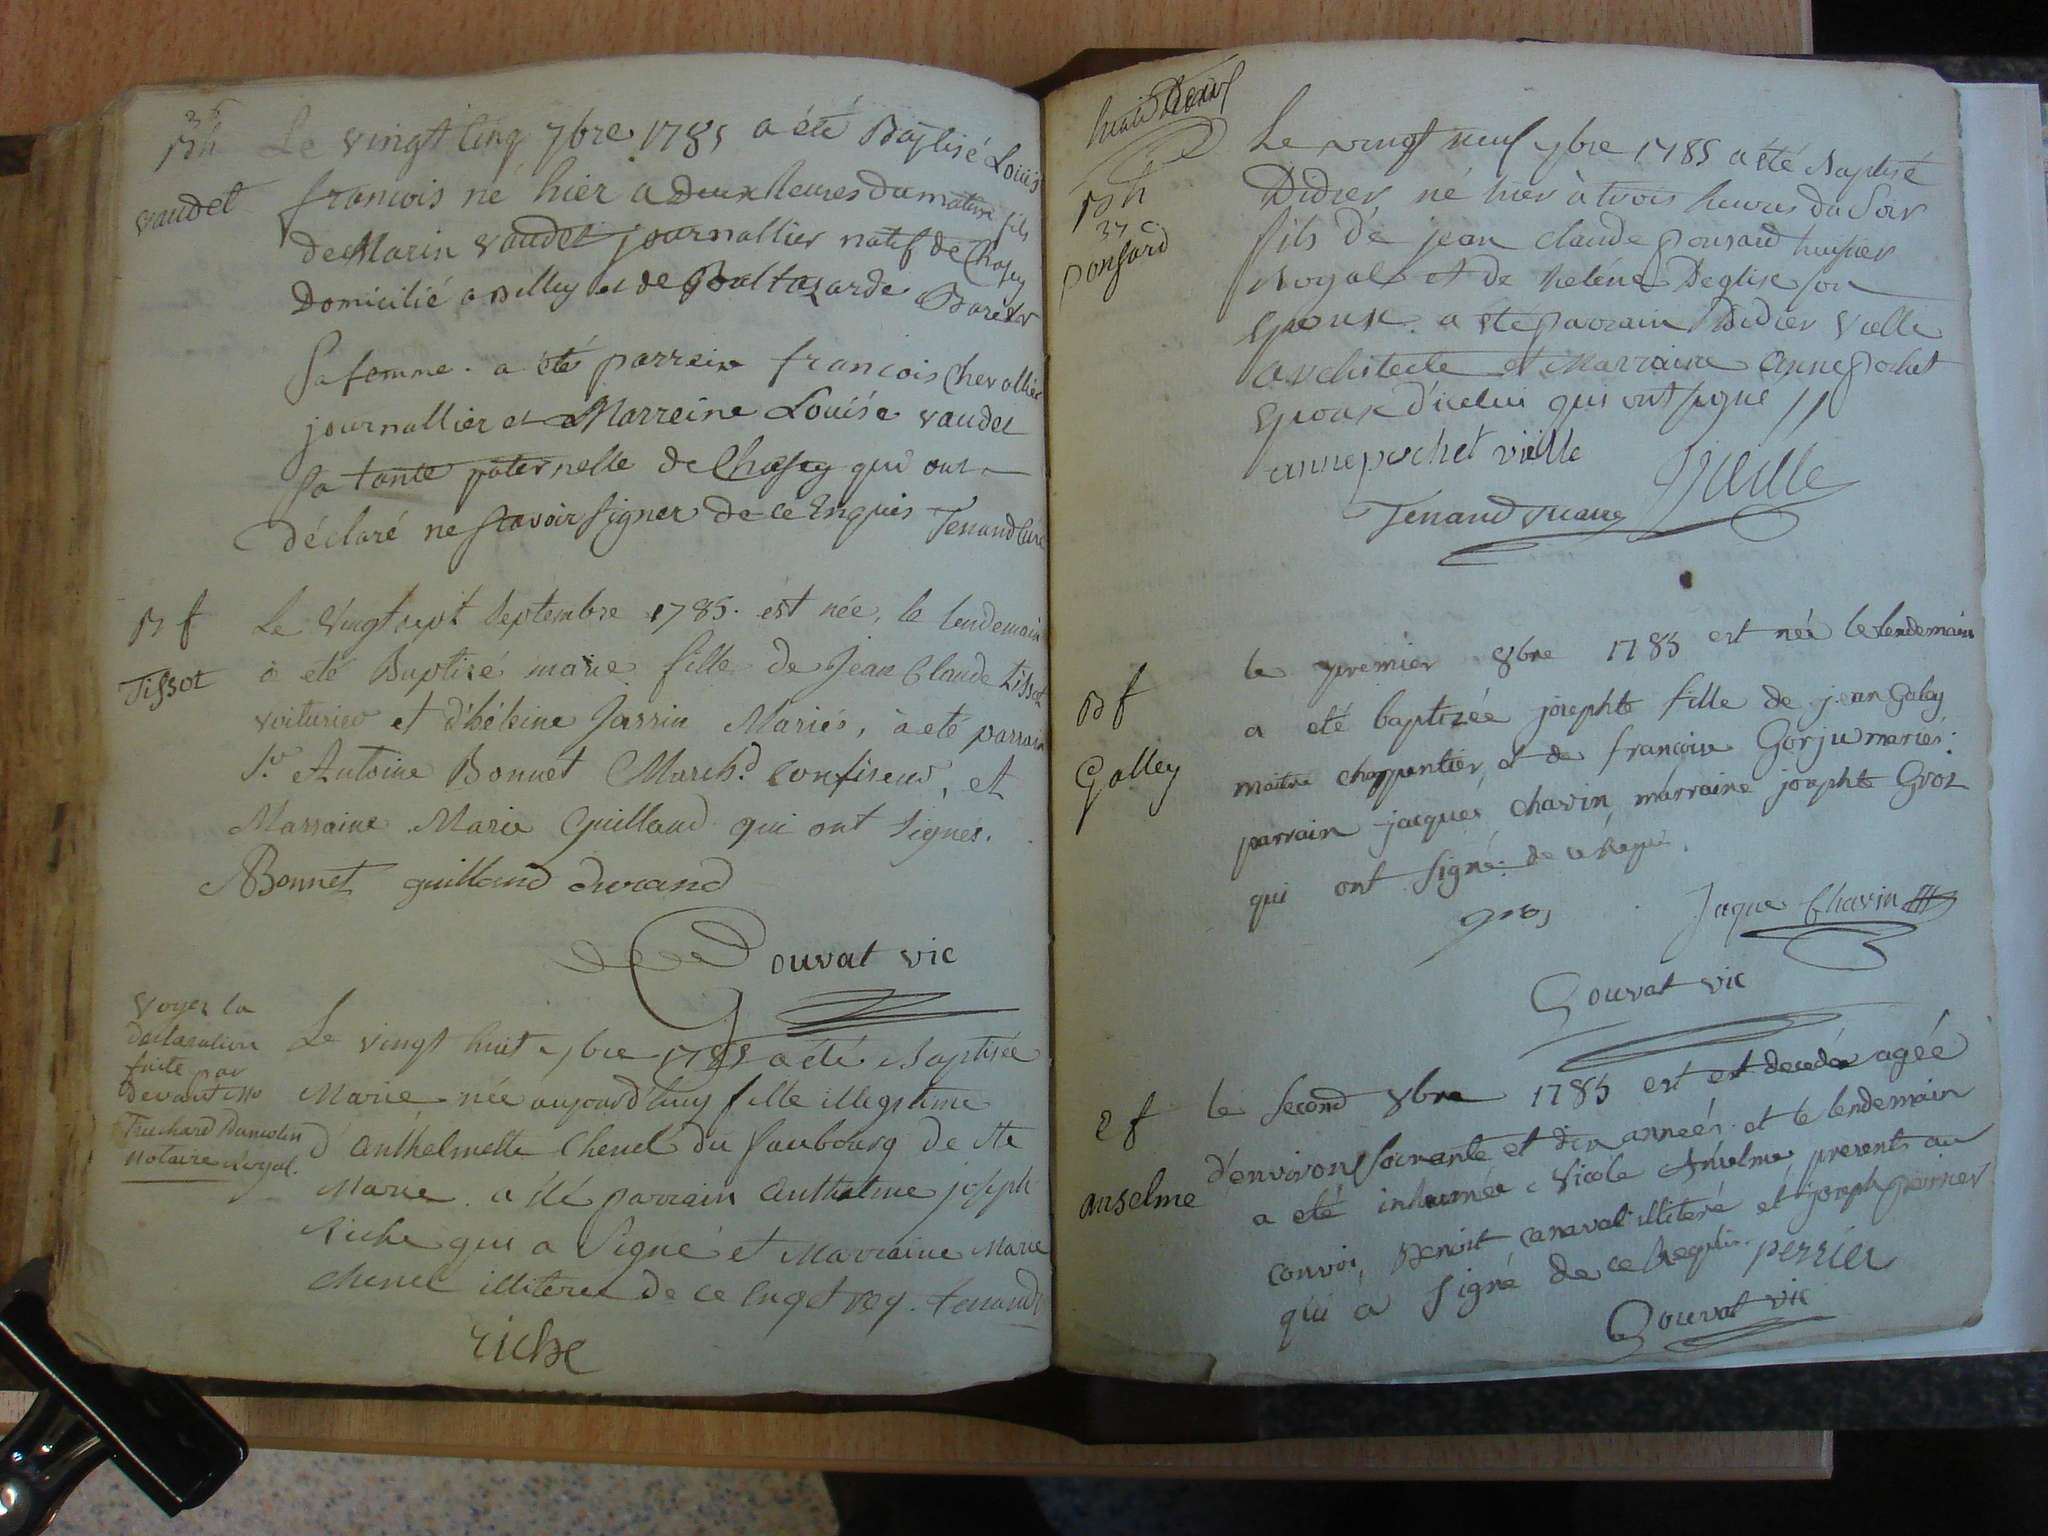 36
Bh
vaudet
Le vingt cinq 7bre 1785 a été Baptisé Louis
francois né hier a deux heures du matin fils
de Marin vaudet journallier natif de Chasey
Domicilié a Belley et de Baltazarde Baret
sa femme. a été parrein francois Chevallier
journallier et Marreine Louise vaudet
sa tante paternelle de Chasey qui ont
déclaré ne scavoir signer de ce Enquis Tenand Curé
B f
Tissot
Le Vingt sept Septembre 1785. est née, le lendemain
à eté Baptisé marie fille de Jean Claude tissot
voiturier et d'héleine Jarrin Mariés, à eté parrain
Sr Antoine Bonnet March.d confiseur, et
Marraine Marie Guilland qui ont signés.
ABonnet guilland durand
Gouvat vic
Voyez la
declaration
faite par
Devant mo
Truchard Dumolin
notaire Royal.
Le vingt huit 7bre 1785 a été Baptisée
Marie née aujourd'huy fille illegitime
d'anthelmette Chenel du faubourg de Ste
Marie. a été parrain anthelme joseph
Riche qui a Signé et Marraine Marie
chenel illiterée de ce Enq et req. tenand
riche
huit Deux
Bh
37
ponsard
Le vingt neuf 7bre 1785 a été Baptisé
Didier né hier à trois heures du soir
fils de jean claude ponsard huissier
Royal et de heléne Deglise son
Epouse. a été parrain Didier vielle
architecte et Marraine anne pochet
Epouse d'icelui qui ont signé //
anne pochet vielle
Vielle
Tenand vicaire
B f
Galley
le premier 8bre 1785 est née le lendemain
a eté baptizée josephte fille de jean Galay
maitre charpentier, et de francoise Gorju mariés:
parrain jacques chavin, marraine josephte Gros
qui ont signé: de ce Requis.
gros
Jaque Chavin
Gouvat vic
E f
anselme
le second 8bre 1785 est est decedée agée
d'environs soixante et dix années. et le lendemain
a eté inhumée Nicole Anselme presents au
convoi, Benoit canaval illiteré et joseph perrier
qui a signé de ce Requis. perrier
Gouvat vic